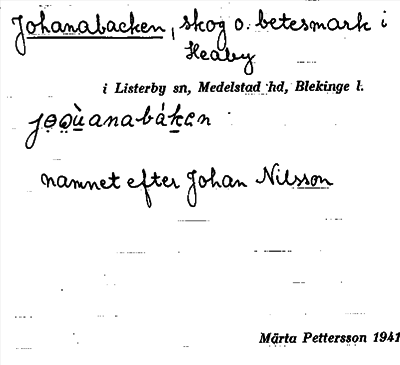 Johanabacken, skog o. betesmark i
Heaby
i Listerby sn, Medelstad hd, Blekinge l.
namnet efter Johan Nilsson
Märta Pettersson 1941